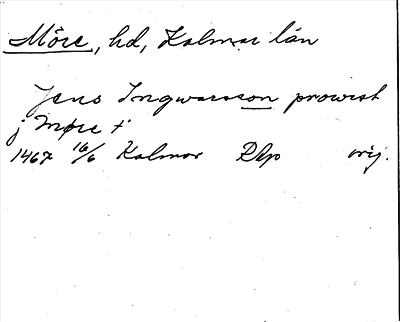 Möre, hd, Kalmar län
Jens Ingwarsson prowest
j Møre t
1467 16/6 Kalmar Rkp orig.